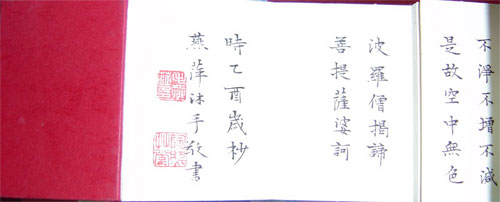 不淨不增不減
是故空中無色
波羅僧揭諦
菩提薩婆訶
時乙酉歲杪
燕萍沐手敬書